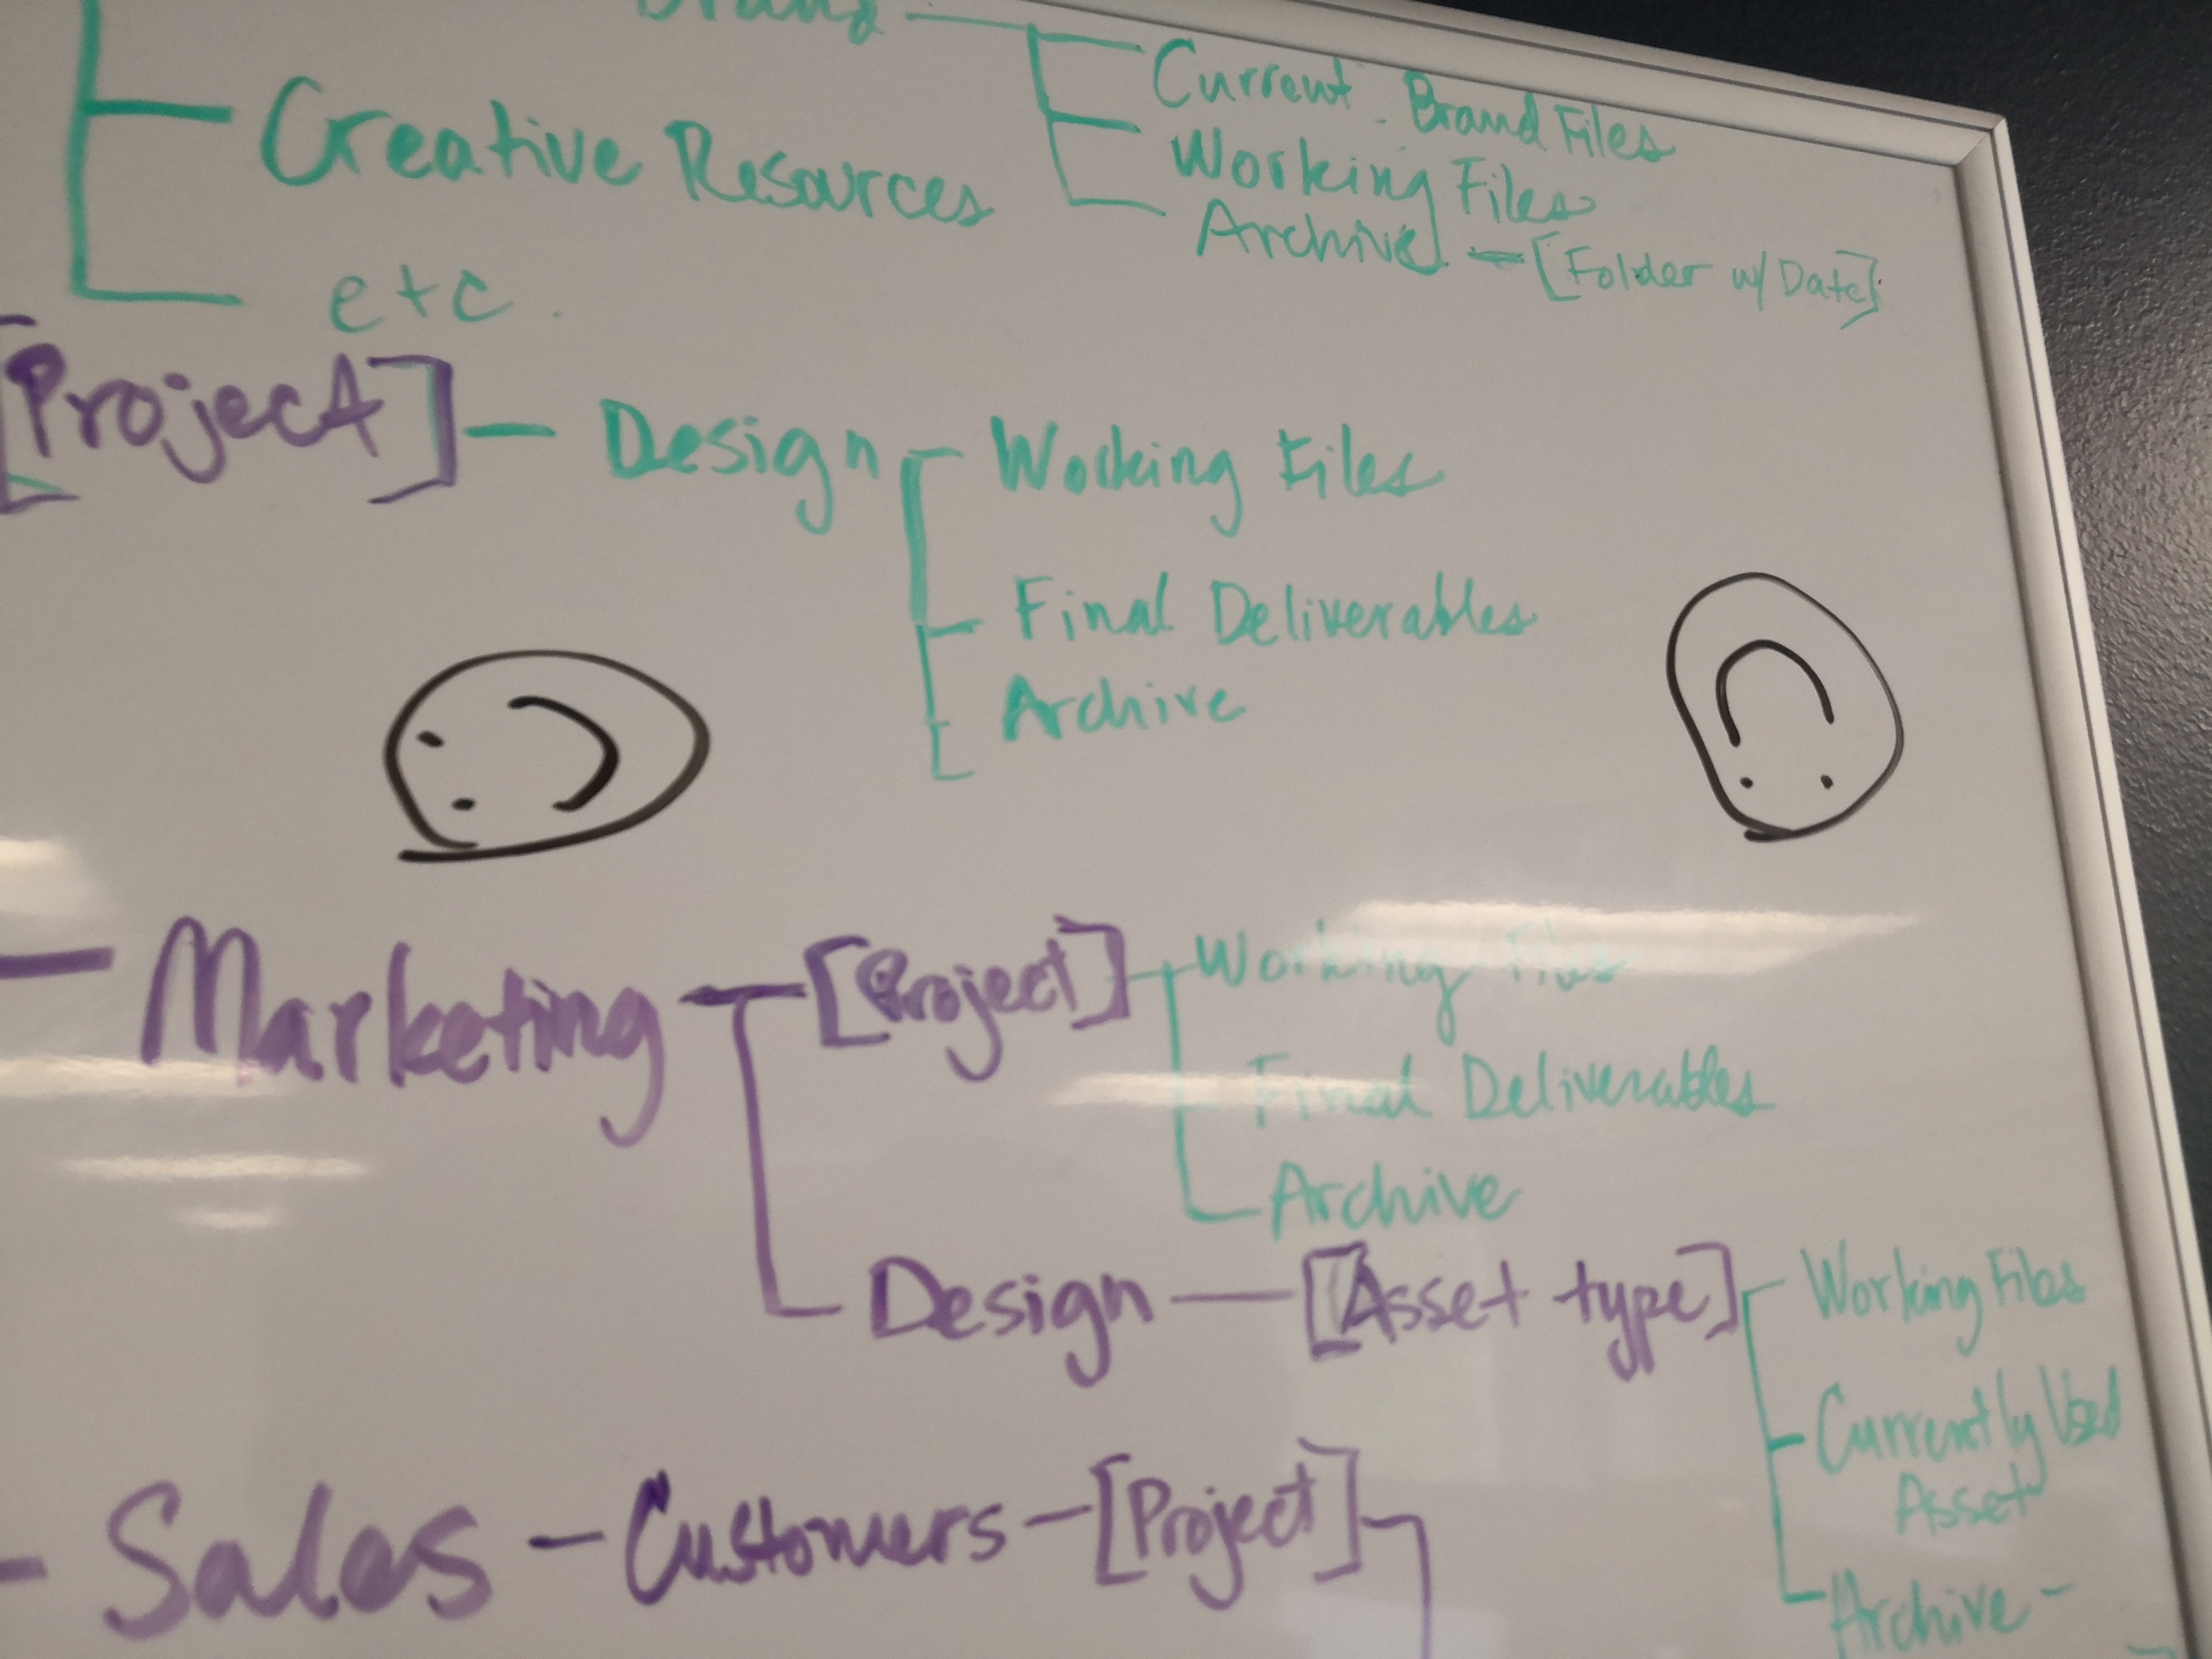 Brand
Current Brand Files
Creative Resources
Working Files
Archive - [Folder w/ Date]
etc.
[Project] - Design
Working Files
Final Deliverables
Archive
Marketing
[Project]
Working Files
Final Deliverables
Archive
Design - [Asset type]
Working Files
Currently Used
Asset
Archive -
Sales - Customers - [Project]